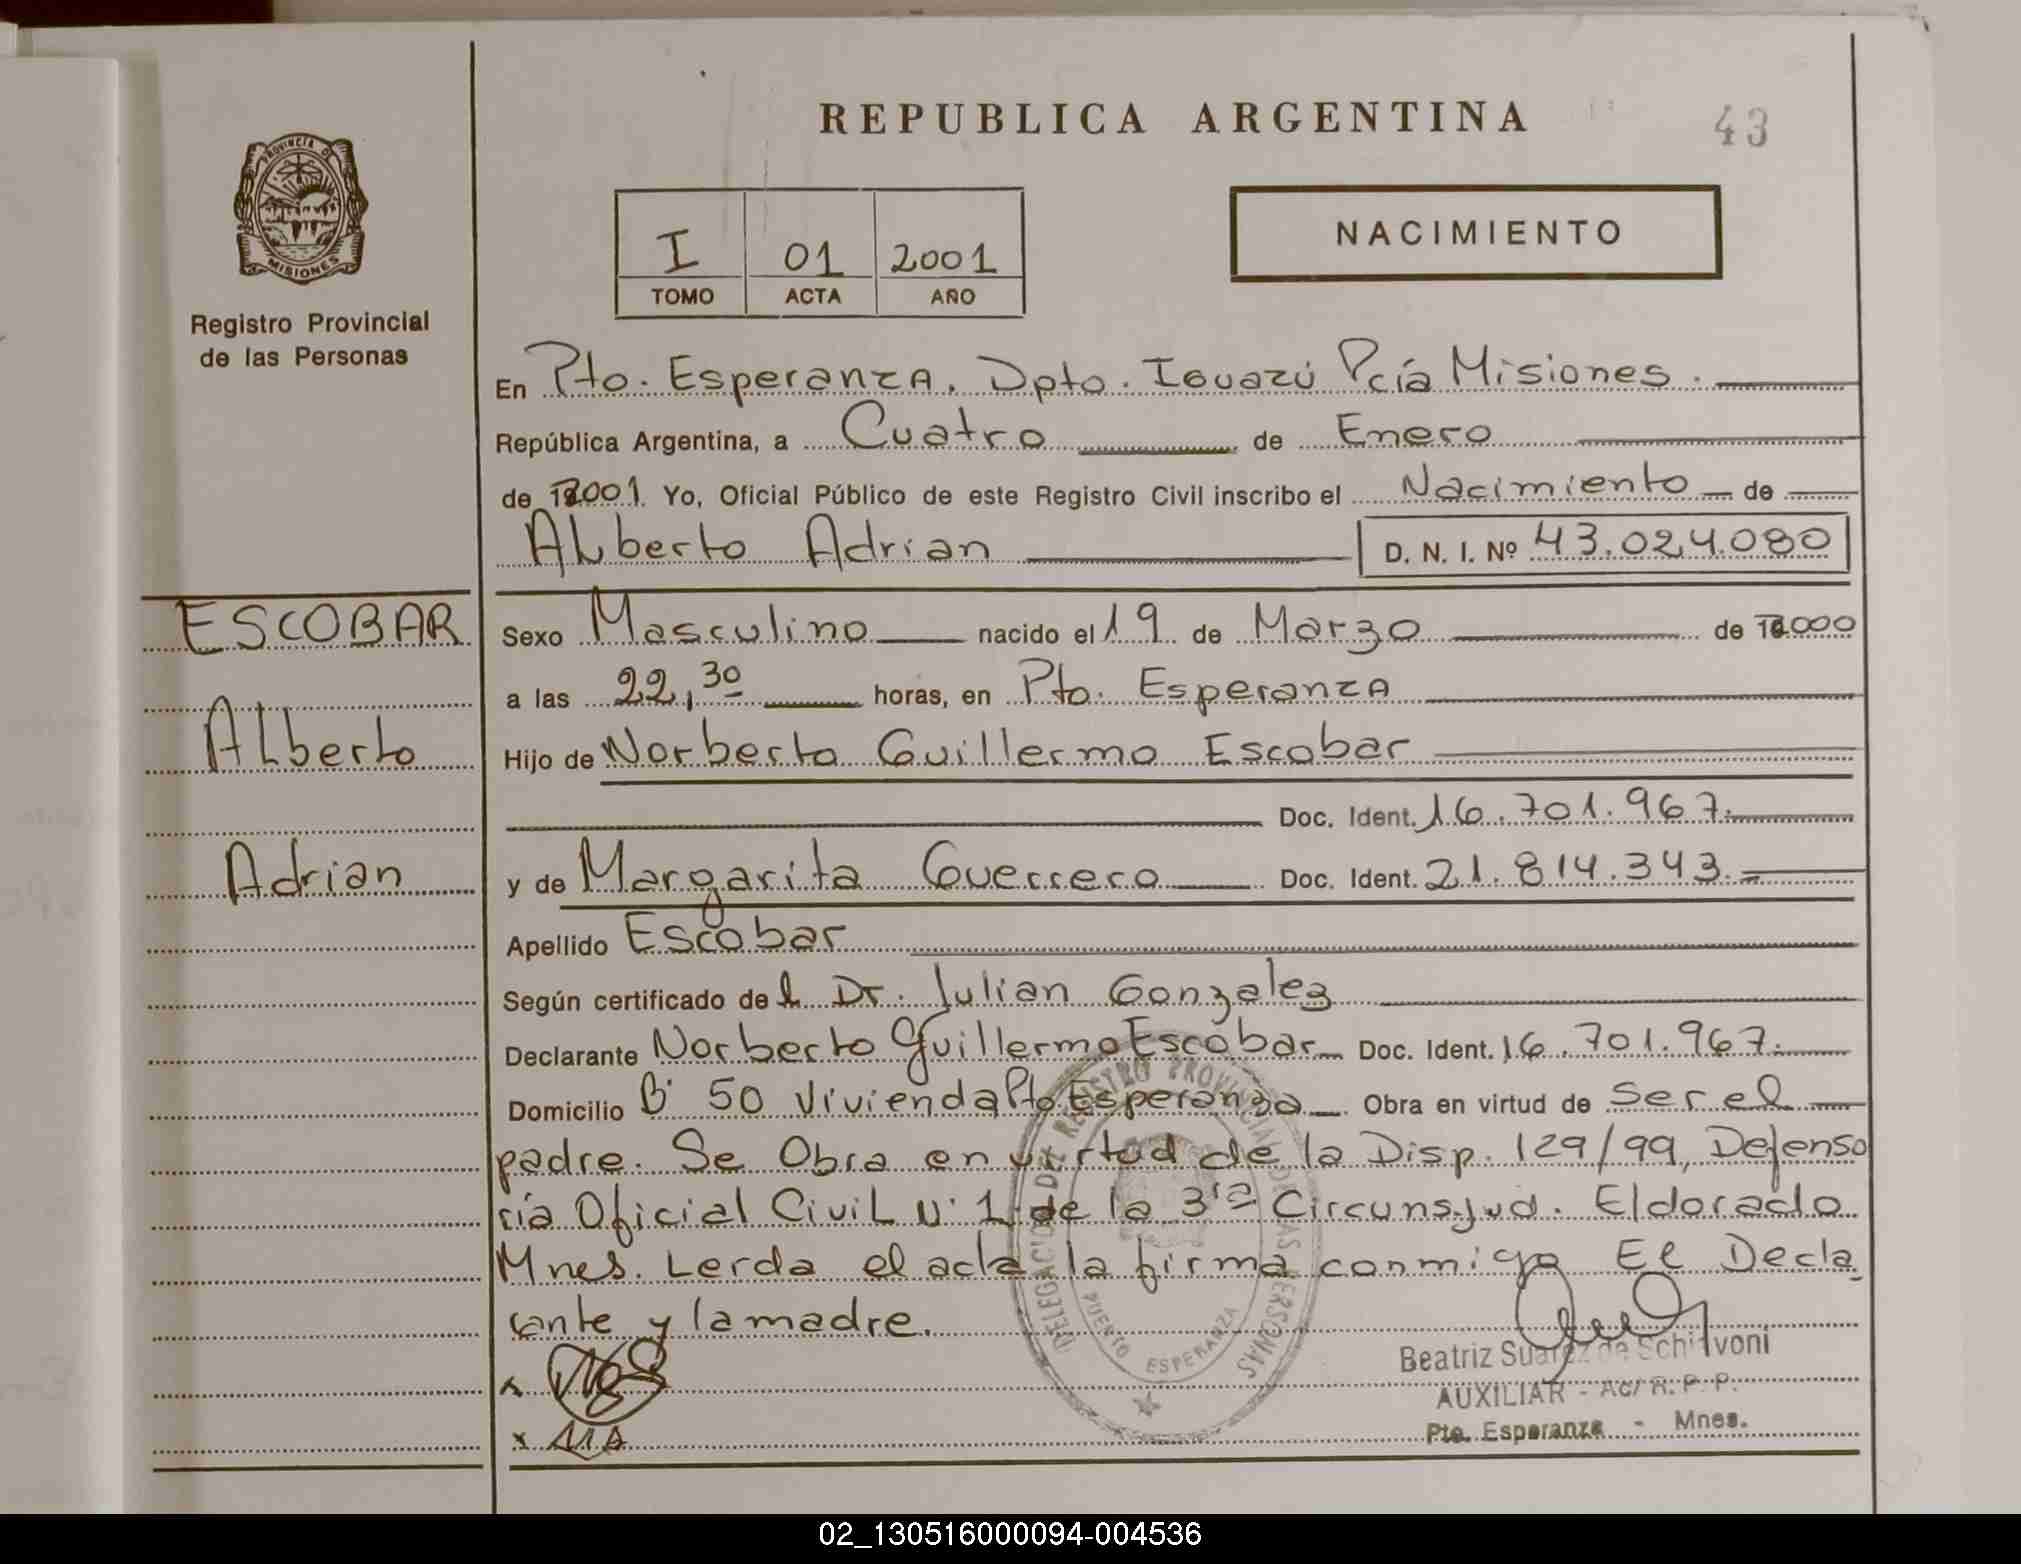 REPUBLICA ARGENTINA
43
PROVINCIA DE
MISIONES
Registro Provincial
de las Personas
I 01 2001
TOMO ACTA AÑO
NACIMIENTO
En Pto. Esperanza. Dpto. Iguazú Pcía Misiones.
República Argentina, a Cuatro de Enero
de 2001. Yo, Oficial Público de este Registro Civil inscribo el Nacimiento de
Alberto Adrian D. N. I. Nº 43.024.080
ESCOBAR
Alberto
Adrian
Sexo Masculino nacido el 19 de Marzo de 2000
a las 22,30 horas, en Pto. Esperanza
Hijo de Norberto Guillermo Escobar
Doc. Ident. 16.701.967.
y de Margarita Guerrero Doc. Ident. 21.814.343.=
Apellido Escobar
Según certificado del Dr. Julian Gonzalez
Declarante Norberto Guillermo Escobar Doc. Ident. 16.701.967.
Domicilio Bº 50 Vivienda Pto Esperanza Obra en virtud de Ser el
padre. Se Obra en virtud de la Disp. 129/99, Defenso
ría Oficial Civil Nº 1 de la 3ra Circuns.jud. Eldorado
Mnes. Lerda el acta la firma conmigo El Decla
rante y la madre.
DELEGACION DE REGISTRO PROVINCIAL DE LAS PERSONAS
PUERTO ESPERANZA
Beatriz Suarez de Schiavoni
AUXILIAR - Ac/ R. P. P.
Pto. Esperanza - Mnes.
02_130516000094-004536